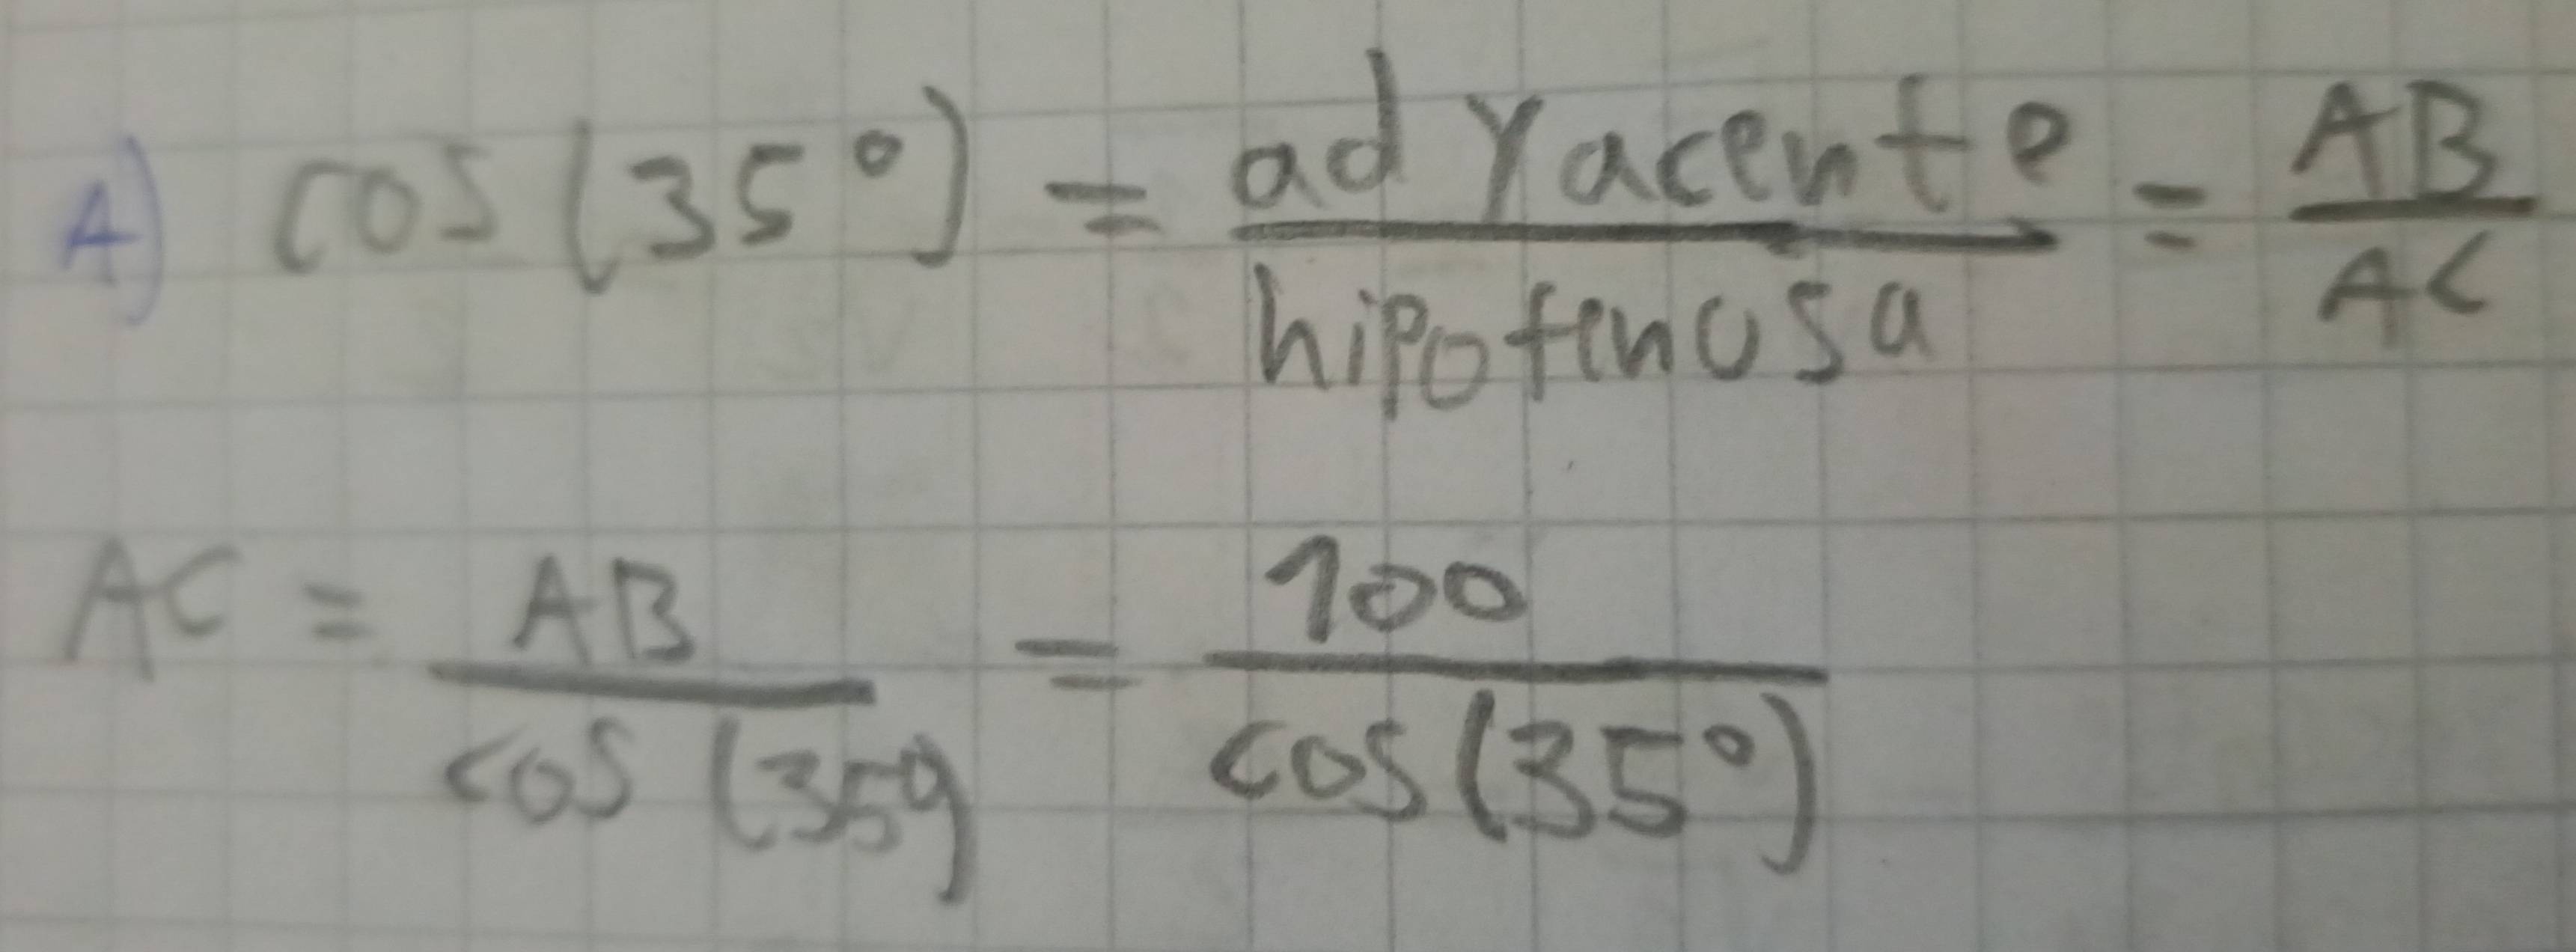 A) cos(35°) = adyacente / hipotenusa = AB / AC
AC = AB / cos(35°) = 100 / cos(35°)